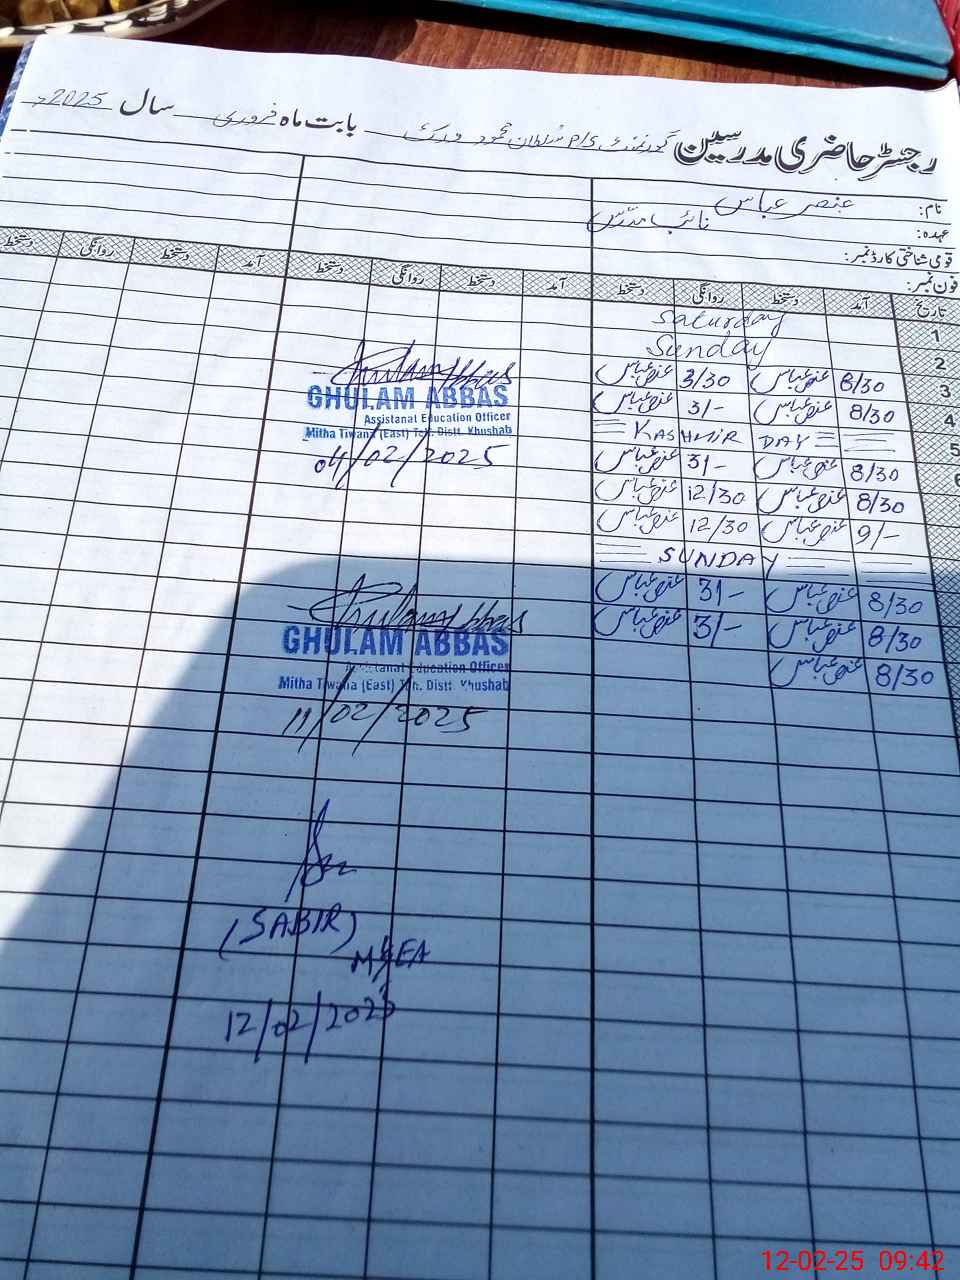 رجسٹر حاضری مدرسین گورنمنٹ P/S سلطان محمود ورک بابت ماہ فروری سال 2025ء
نام: عنصر عباس
عہدہ: نائب مدرس
قومی شناختی کارڈ نمبر:
فون نمبر:
تاریخ آمد دستخط روانگی دستخط آمد دستخط روانگی دستخط آمد دستخط روانگی دستخط
1 Saturday
2 Sunday
3 8/30 عنصر عباس 3/30 عنصر عباس
4 8/30 عنصر عباس 3/- عنصر عباس
5 KASHMIR DAY
6 8/30 عنصر عباس 3/- عنصر عباس
8/30 عنصر عباس 12/30 عنصر عباس
9/- عنصر عباس 12/30 عنصر عباس
SUNDAY
8/30 عنصر عباس 3/- عنصر عباس
8/30 عنصر عباس 3/- عنصر عباس
8/30 عنصر عباس
Ghulam Abbas
GHULAM ABBAS
Assistanat Education Officer
Mitha Tiwana (East) Teh. Distt. Khushab
04/02/2025
Ghulam Abbas
GHULAM ABBAS
Assistanat Education Officer
Mitha Tiwana (East) Teh. Distt. Khushab
11/02/2025
(SABIR)
MEA
12/02/2025
12-02-25 09:42